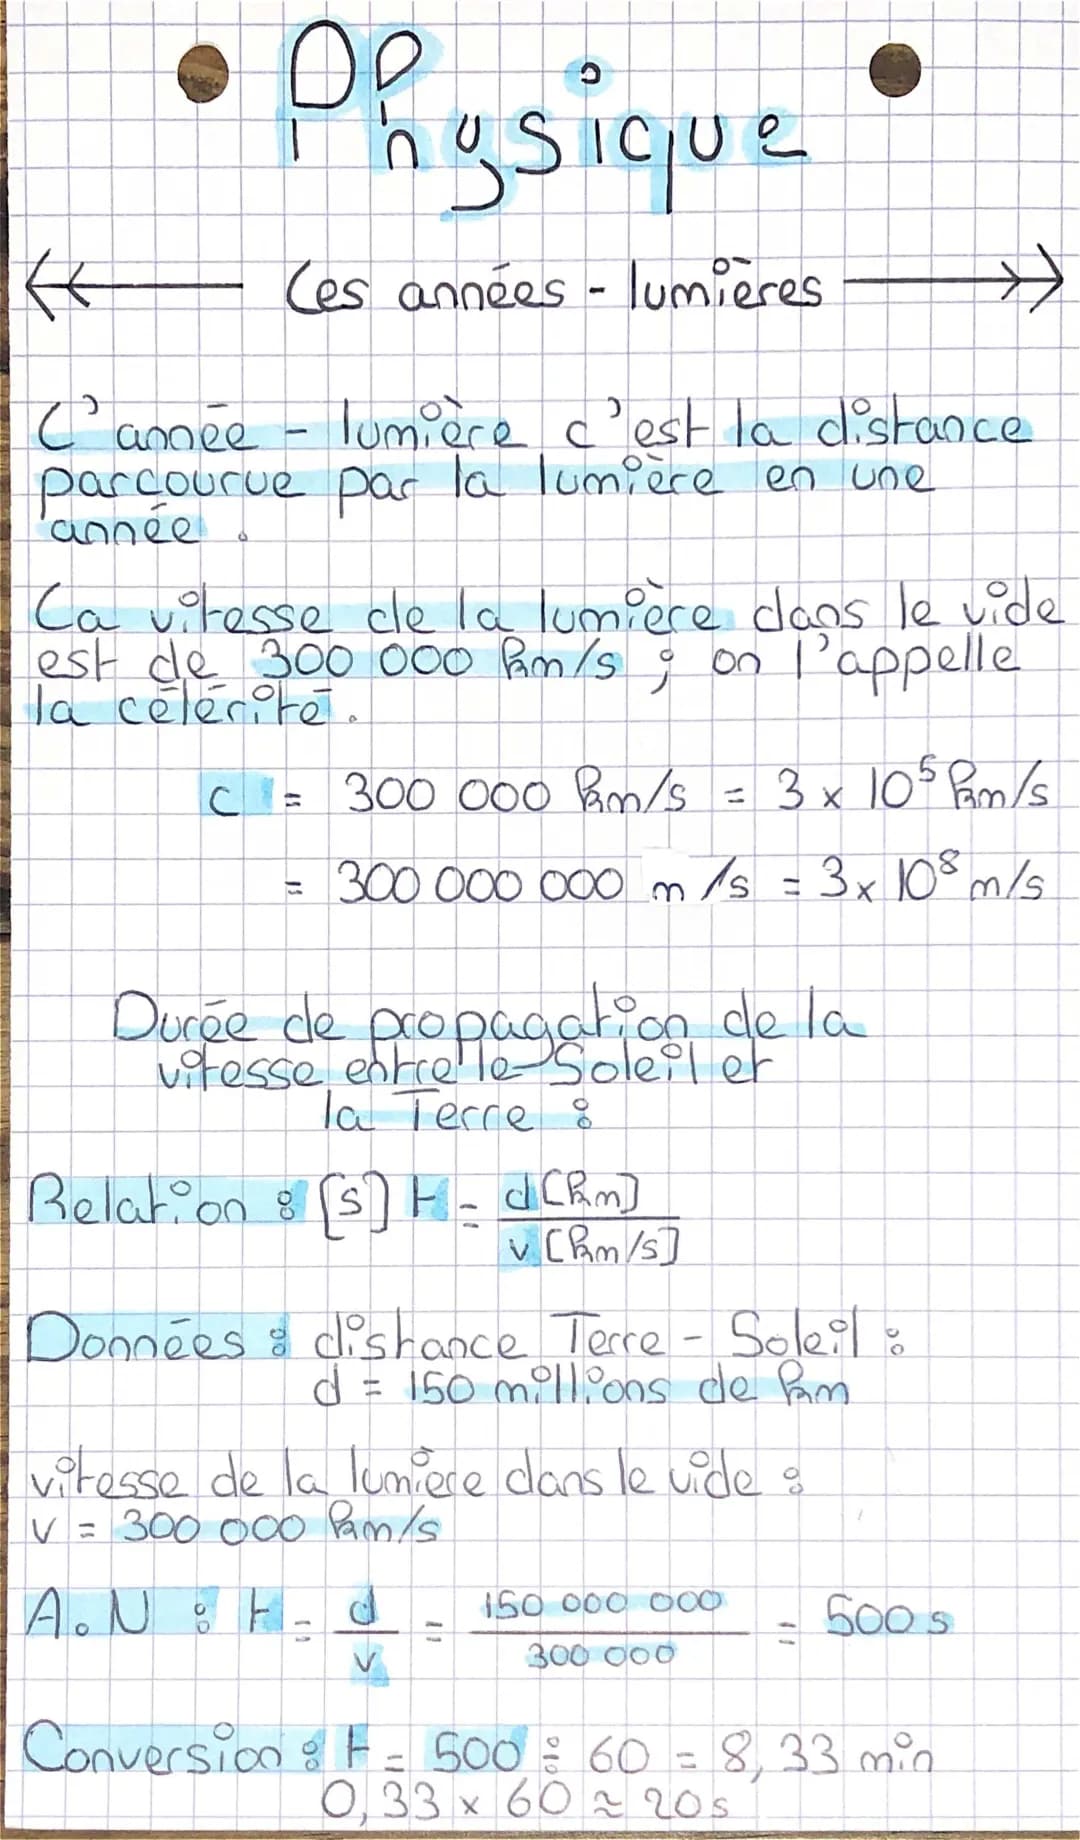 Physique
Les années - lumières
L'année - lumière c'est la distance
parcourue par la lumière en une
année.
La vitesse de la lumière dans le vide
est de 300 000 km/s ; on l'appelle
la célérité.
c = 300 000 km/s = 3 x 10⁵ km/s
= 300 000 000 m/s = 3 x 10⁸ m/s
Durée de propagation de la
vitesse entre le Soleil et
la Terre :
Relation : [s] t = d [km] / v [km/s]
Données : distance Terre - Soleil :
d = 150 millions de km
vitesse de la lumière dans le vide :
v = 300 000 km/s
A.N : t = d / v = 150 000 000 / 300 000 = 500 s
Conversion : t = 500 ÷ 60 = 8,33 min
0,33 x 60 ≈ 20s